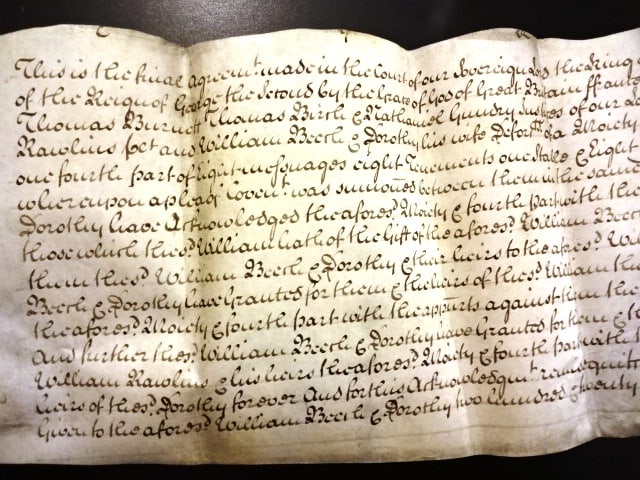 This is the final agreem.t made in the Court of our Sovereign Lord the King
of the Reign of George the Second by the Grace of God of Great Britain ffrance
Thomas Burnett Thomas Birch & Nathaniel Gundry Justices of our
Rawlins pet and William Beech & Dorothy his wife Deforts of a Moiety
one fourth part of Eight messuages eight Tenements one Stable & Eight
whereupon a plea of Coven.t was summoned between them in the same
Dorothy have Acknowledged the afores.d Moiety & fourth part with the
those which the s.d William hath of the Gift of the afores.d William Beech
them the s.d William Beech & Dorothy & their heirs to the afores.d
Beech & Dorothy have Granted for them & the heirs of the s.d William
the afores.d Moiety & fourth part with the appurts against them the
And further the s.d William Beech & Dorothy have Granted for them &
William Rawlins & his heirs the afores.d Moiety & fourth part with
heirs of the s.d Dorothy forever And for this Acknowledgm.t
Given to the afores.d William Beech & Dorothy two hundred & twenty